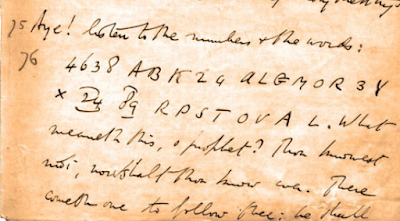 75 Aye! listen to the numbers & the words:
76 4 6 3 8 A B K 2 4 A L G M O R 3 Y
X 24 89 R P S T O V A L. What
meaneth this, o prophet? Thou knowest
not; nor shalt thou know ever. There
cometh one to follow thee: he shall